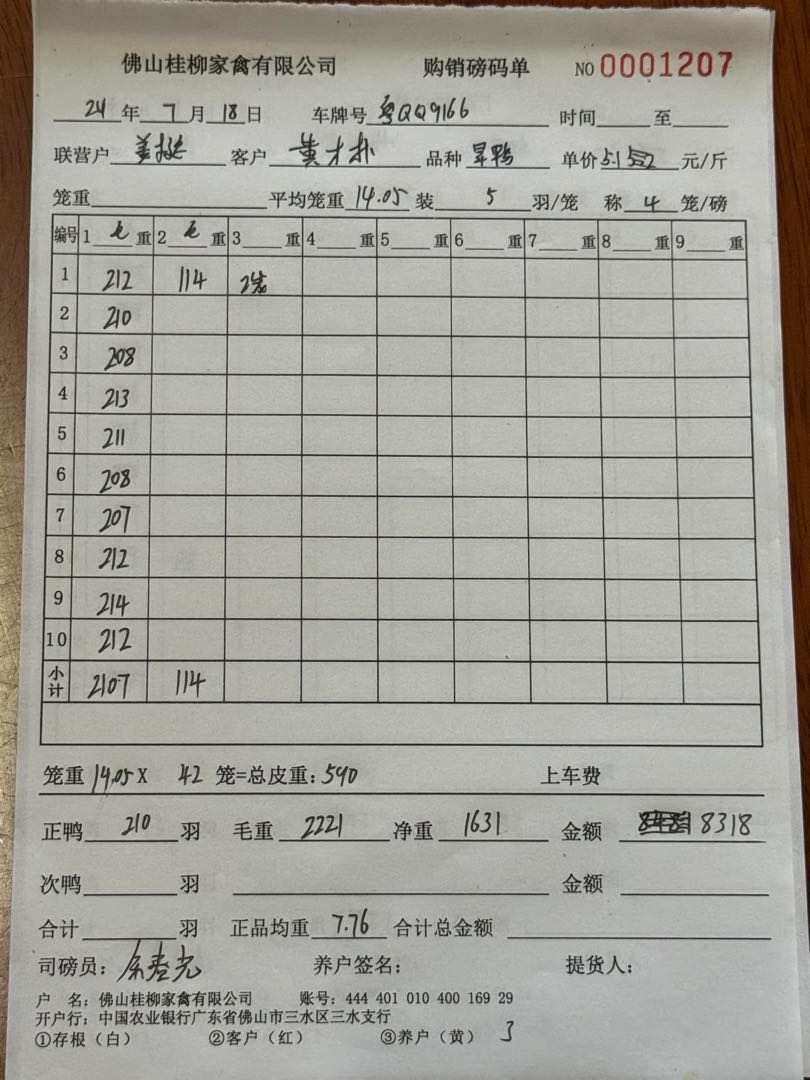 佛山桂柳家禽有限公司 购销磅码单 NO 0001207
24年7月18日 车牌号 粤QQ9166 时间 至
联营户 客户 黄才朴 品种 旱鸭 单价 5.1 元/斤
笼重 平均笼重 14.05 装 5 羽/笼 称 4 笼/磅
编号 1 毛 重 2 毛 重 3 重 4 重 5 重 6 重 7 重 8 重 9 重
1 212 114 2笼
2 210
3 208
4 213
5 211
6 208
7 207
8 212
9 214
10 212
小计 2107 114
笼重 14.05 X 42 笼=总皮重：590 上车费
正鸭 210 羽 毛重 2221 净重 1631 金额 8318
次鸭 羽 金额
合计 羽 正品均重 7.76 合计总金额
司磅员： 养户签名： 提货人：
户 名：佛山桂柳家禽有限公司 账号：444 401 010 400 169 29
开户行：中国农业银行广东省佛山市三水区三水支行
①存根（白） ②客户（红） ③养户（黄） 3